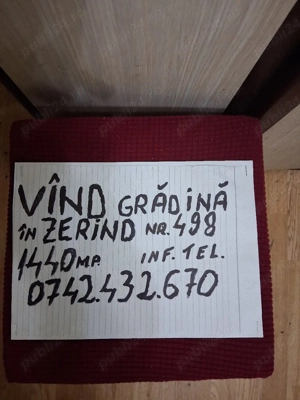 VÎND GRĂDINĂ
ÎN ZERIND NR. 498
1440 MP. INF. TEL.
0742.432.670